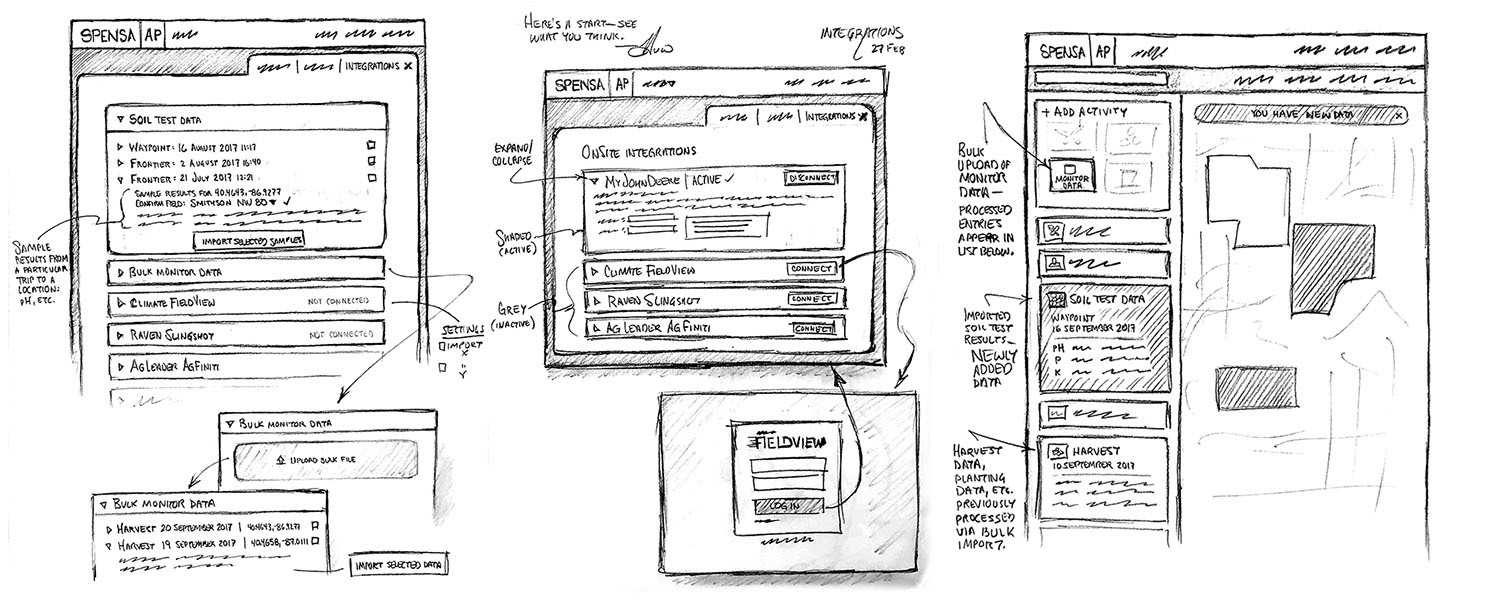 SPENSA AP
INTEGRATIONS X
▽ SOIL TEST DATA
▷ WAYPOINT: 16 AUGUST 2017 11:17
▷ FRONTIER: 2 AUGUST 2017 16:40
▽ FRONTIER: 21 JULY 2017 12:21
SAMPLE RESULTS FOR 40.4643,-86.9277
CONFIRM FIELD: SMITHSON NW 80 ▼ ✓
IMPORT SELECTED SAMPLES
SAMPLE
RESULTS FROM
A PARTICULAR
TRIP TO A
LOCATION:
PH, ETC.
▷ BULK MONITOR DATA
▷ CLIMATE FIELDVIEW NOT CONNECTED
▷ RAVEN SLINGSHOT NOT CONNECTED
▷ AG LEADER AGFINITI
SETTINGS
IMPORT
X
" Y
▽ BULK MONITOR DATA
UPLOAD BULK FILE
▽ BULK MONITOR DATA
▷ HARVEST 20 SEPTEMBER 2017 | 40.4643,-86.9277
▽ HARVEST 19 SEPTEMBER 2017 | 40.4658,-87.0111
IMPORT SELECTED DATA
HERE'S A START—SEE
WHAT YOU THINK.
INTEGRATIONS
27 FEB
SPENSA AP
INTEGRATIONS X
ONSITE INTEGRATIONS
EXPAND/
COLLAPSE
▽ MYJOHNDEERE | ACTIVE ✓ DISCONNECT
SHADED
(ACTIVE)
▷ CLIMATE FIELDVIEW CONNECT
▷ RAVEN SLINGSHOT CONNECT
▷ AG LEADER AGFINITI CONNECT
GREY
(INACTIVE)
FIELDVIEW
LOG IN
SPENSA AP
+ ADD ACTIVITY
YOU HAVE NEW DATA X
MONITOR
DATA
BULK
UPLOAD OF
MONITOR
DATA—
PROCESSED
ENTRIES
APPEAR IN
LIST BELOW.
SOIL TEST DATA
WAYPOINT
16 SEPTEMBER 2017
PH
P
K
IMPORTED
SOIL TEST
RESULTS—
NEWLY
ADDED
DATA
HARVEST
10 SEPTEMBER 2017
HARVEST
DATA,
PLANTING
DATA, ETC.
PREVIOUSLY
PROCESSED
VIA BULK
IMPORT.